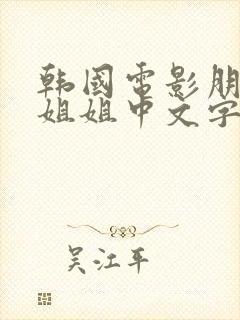 韩國電影朋
姐姐中文字
吴江平